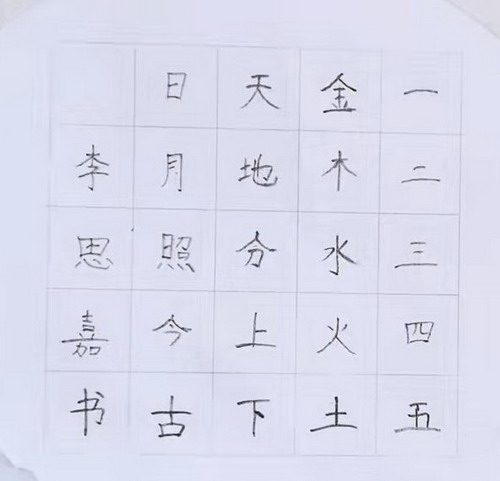 一二三四五
金木水火土
天地分上下
日月照今古
李思嘉书